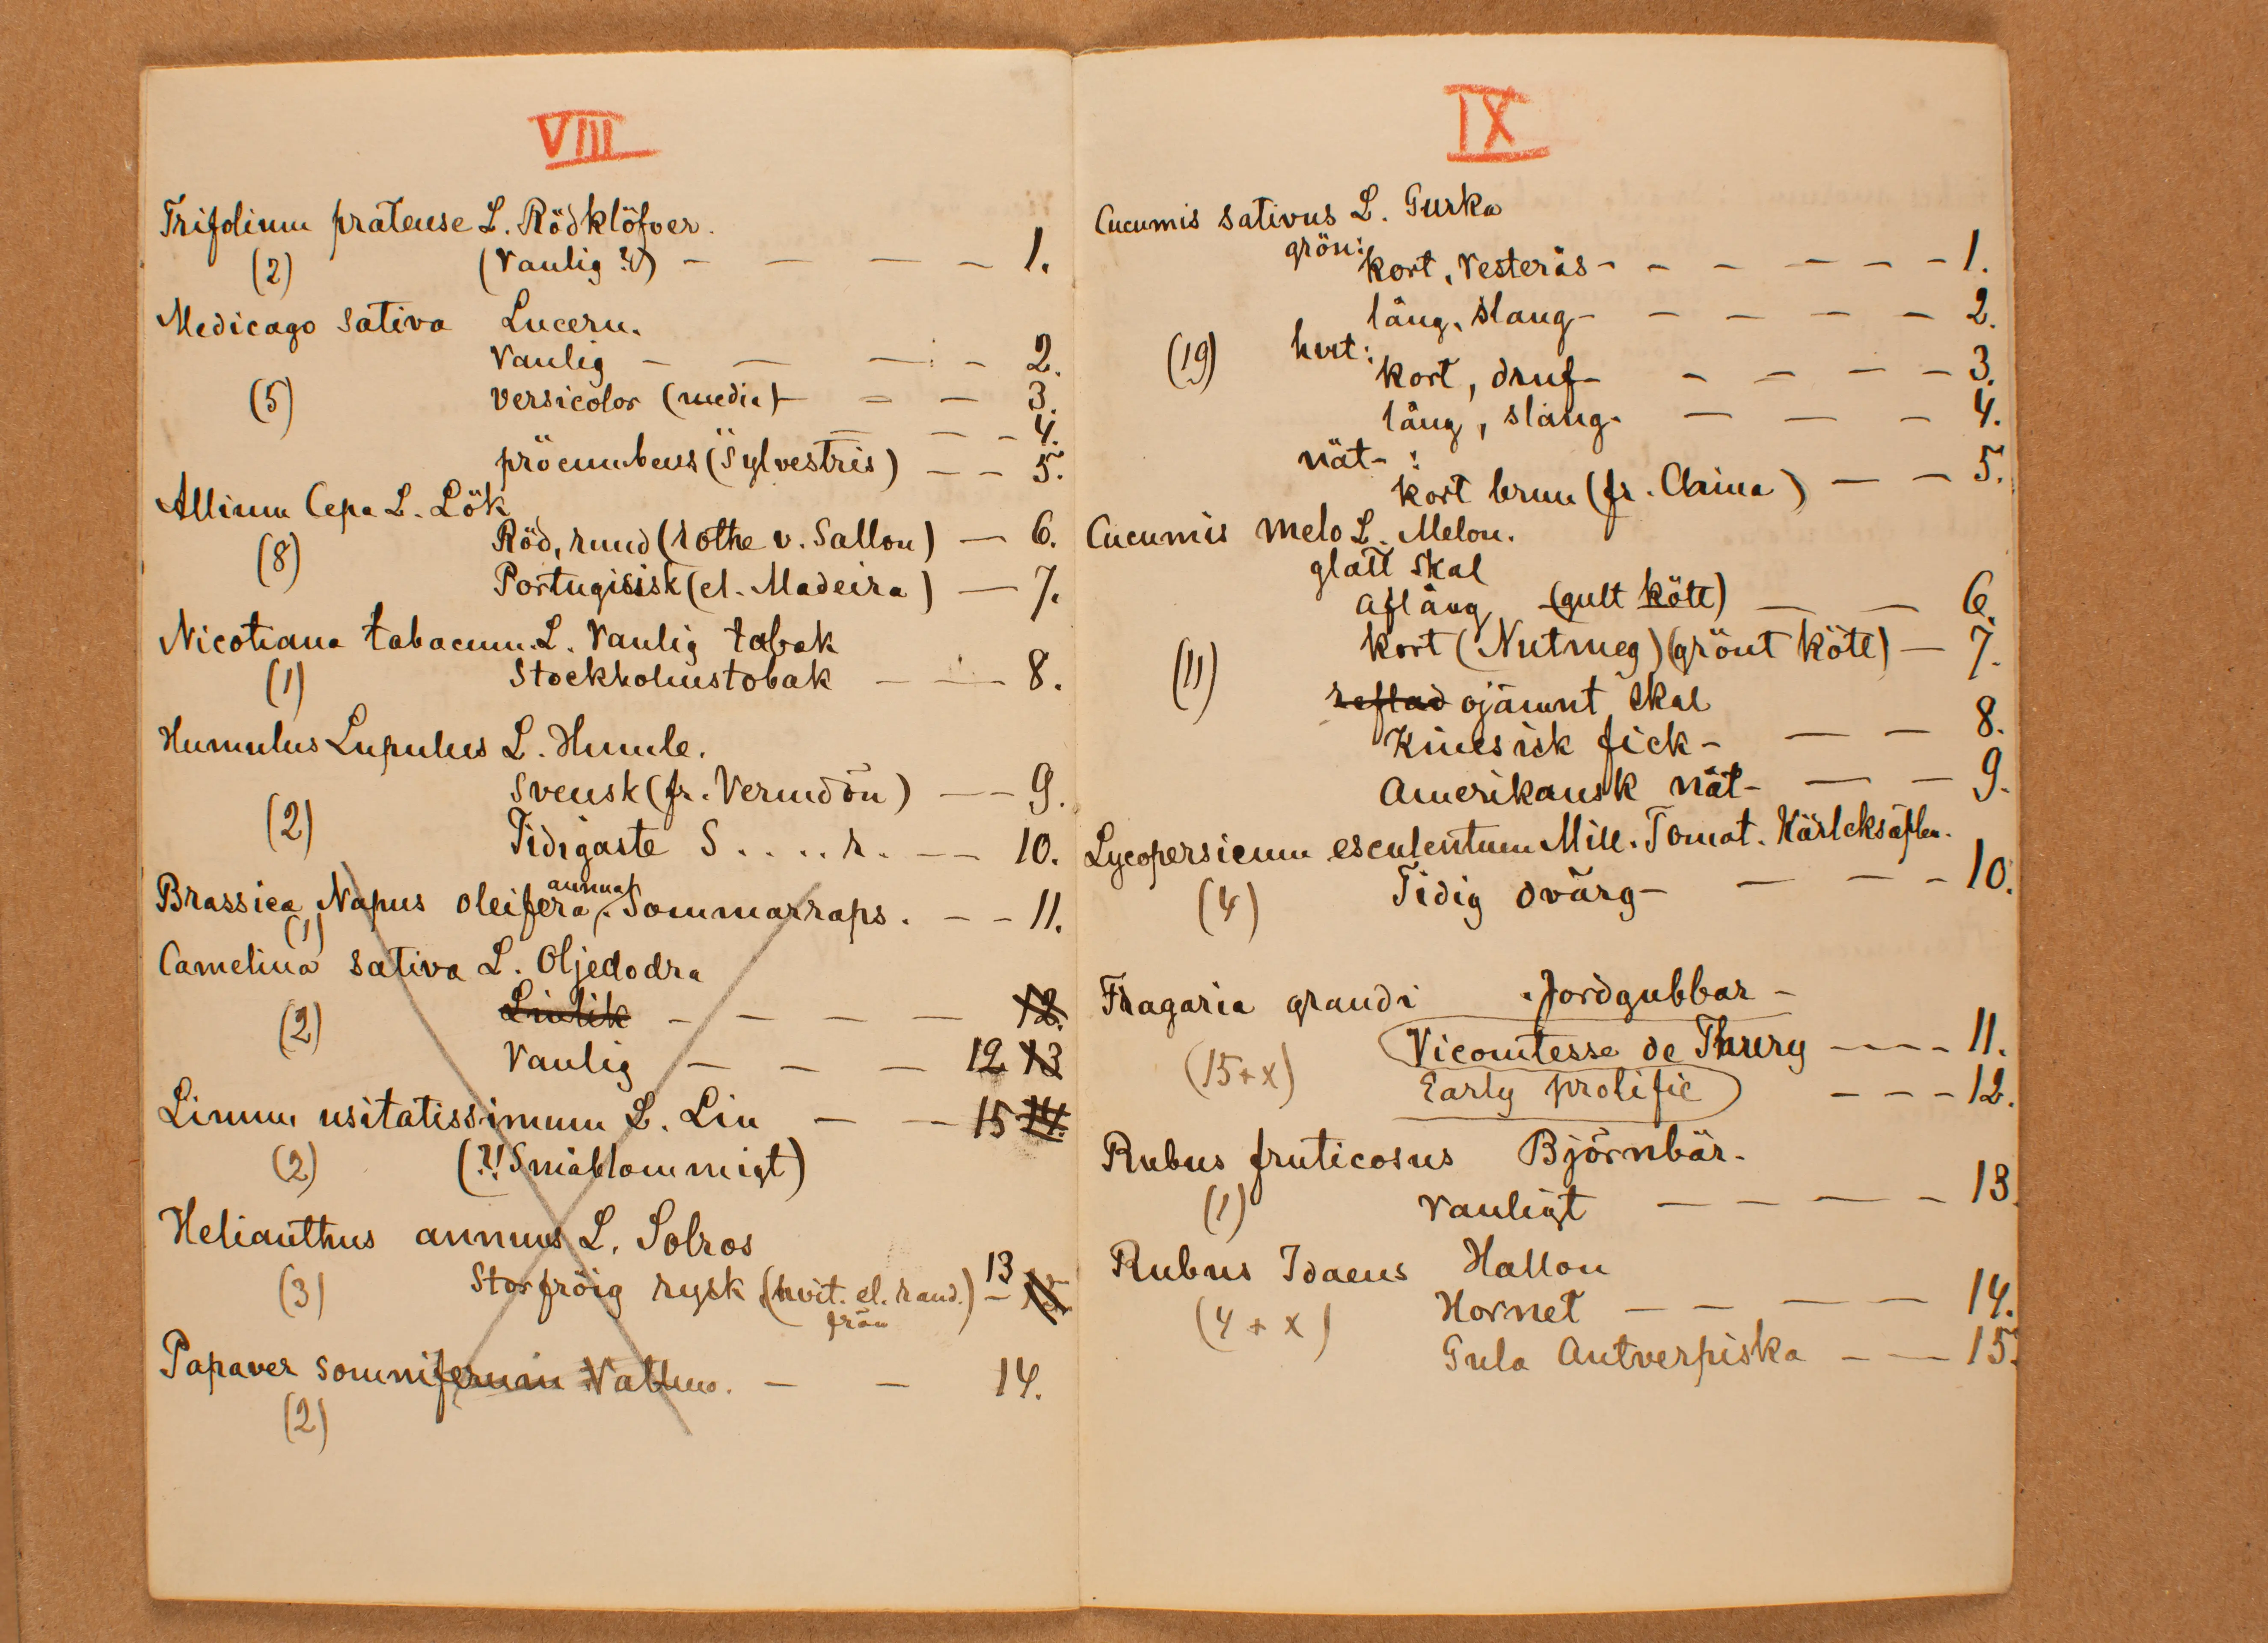 VIII
Trifolium pratense L. Rödklöfver.
(2) (Vanlig ?!) — — — — 1.
Medicago sativa Lucern.
Vanlig — — — — 2.
(5) versicolor (media) — — — 3.
— — — 4.
procumbens (Sylvestris) — — 5.
Allium Cepa L. Lök
(8) Röd, rund (rothe v. Sallon) — 6.
Portugisisk (el. Madeira) — 7.
Nicotiana tabacum. L. Vanlig tabak
(1) Stockholmstobak — — 8.
Humulus Lupulus L. Humle.
Svensk (fr. Vermdön) — — 9.
(2) Tidigaste S . . . . r. — — 10.
Brassica Napus oleifera annua. Sommarraps. — — 11.
(1)
Camelina sativa L. Oljedodra
(2) Linlik — — — — 12.
Vanlig — — — 12 13
Linum usitatissimum L. Lin — — 15 14.
(2) (?! Småblommigt)
Helianthus annuus L. Solros
(3) Storfröig rysk (hvit. el. rand. frön) — 13 15
Papaver somniferum Vallmo. — — 14.
(2)
IX
Cucumis sativus L. Gurka
grön: kort, Vesterås- — — — — — 1.
lång, slang- — — — — — 2.
(19) hvit:
kort, druf- — — — — 3.
lång, slang- — — — 4.
nät- :
kort brun (fr. China) — — 5.
Cucumis melo L. Melon.
glatt skal
aflång (gult kött) — — 6.
kort (Nutmeg) (grönt kött) — 7.
(11) reflad ojämnt skal
Kinesisk fick- — — 8.
Amerikansk nät- — — 9.
Lycopersicum esculentum Mill. Tomat. Kärleksäplen.
(4) Tidig dvärg- — — — 10.
Fragaria grandi Jordgubbar -
(15+x) Vicomtesse de Thury — — — — 11.
Early prolific — — — 12.
Rubus fruticosus Björnbär.
(1) Vanligt — — — — 13.
Rubus Idaeus Hallon
(4 + x) Hornet — — — — 14.
Gula Antverpiska — — 15.